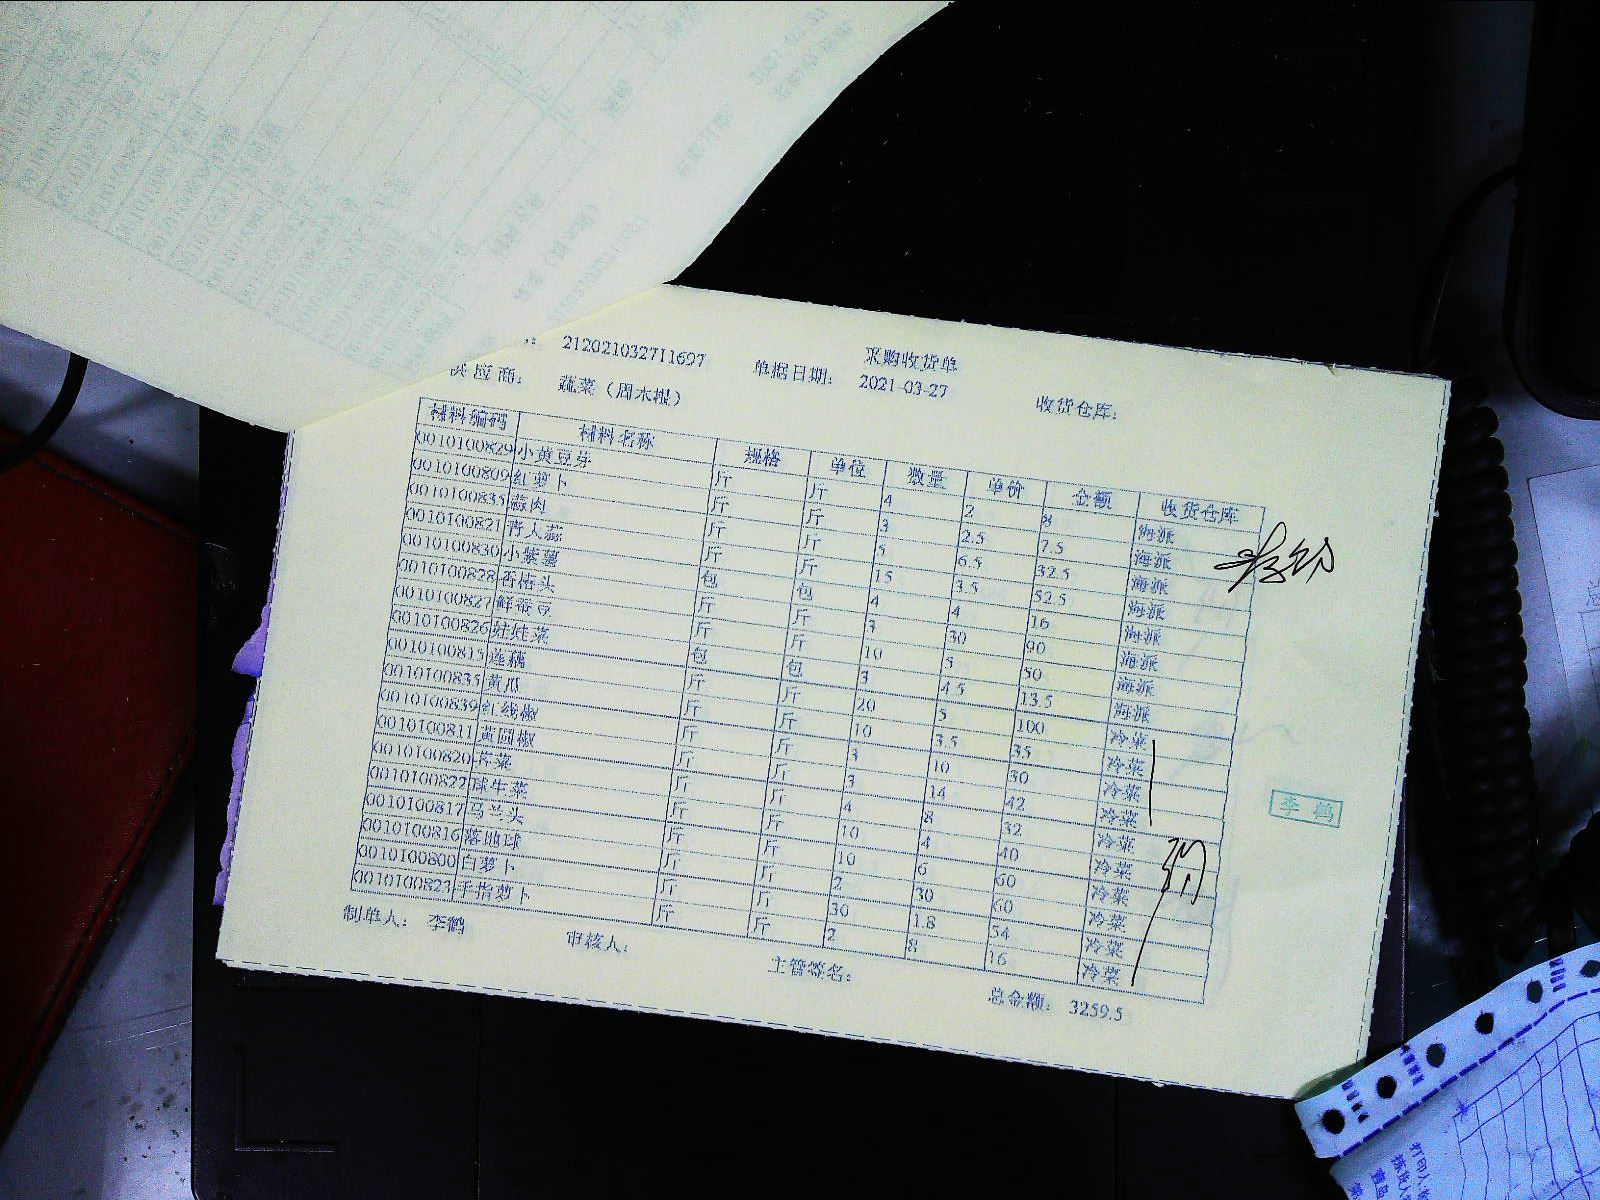 采购收货单
212021032711697 单据日期： 2021-03-27 收货仓库：
供应商： 蔬菜（周木根）
材料编码 材料名称 规格 单位 数量 单价 金额 收货仓库
0010100829 小黄豆芽 斤 斤 4 2 8 海派
0010100809 红萝卜 斤 斤 3 2.5 7.5 海派
0010100835 蒜肉 斤 斤 5 6.5 32.5 海派
0010100821 青大蒜 斤 斤 15 3.5 52.5 海派
0010100830 小紫薯 包 包 4 4 16 海派
0010100828 斤 斤 3 30 90 海派
0010100827 鲜蚕豆 斤 斤 10 5 50 海派
0010100826 娃娃菜 包 包 3 4.5 13.5 海派
0010100815 莲藕 斤 斤 20 5 100 冷菜
0010100835 黄瓜 斤 斤 10 3.5 35 冷菜
0010100839 红线椒 斤 斤 3 10 30 冷菜
0010100811 黄圆椒 斤 斤 3 14 42 冷菜
0010100820 斤 斤 4 8 32 冷菜
0010100822 斤 斤 10 4 40 冷菜
0010100817 马兰头 斤 斤 10 6 60 冷菜
0010100816 落地球 斤 斤 2 30 60 冷菜
0010100800 白萝卜 斤 斤 30 1.8 54 冷菜
0010100823 手指萝卜 斤 斤 2 8 16 冷菜
李鹤
制单人： 李鹤 审核人： 主管签名： 总金额： 3259.5